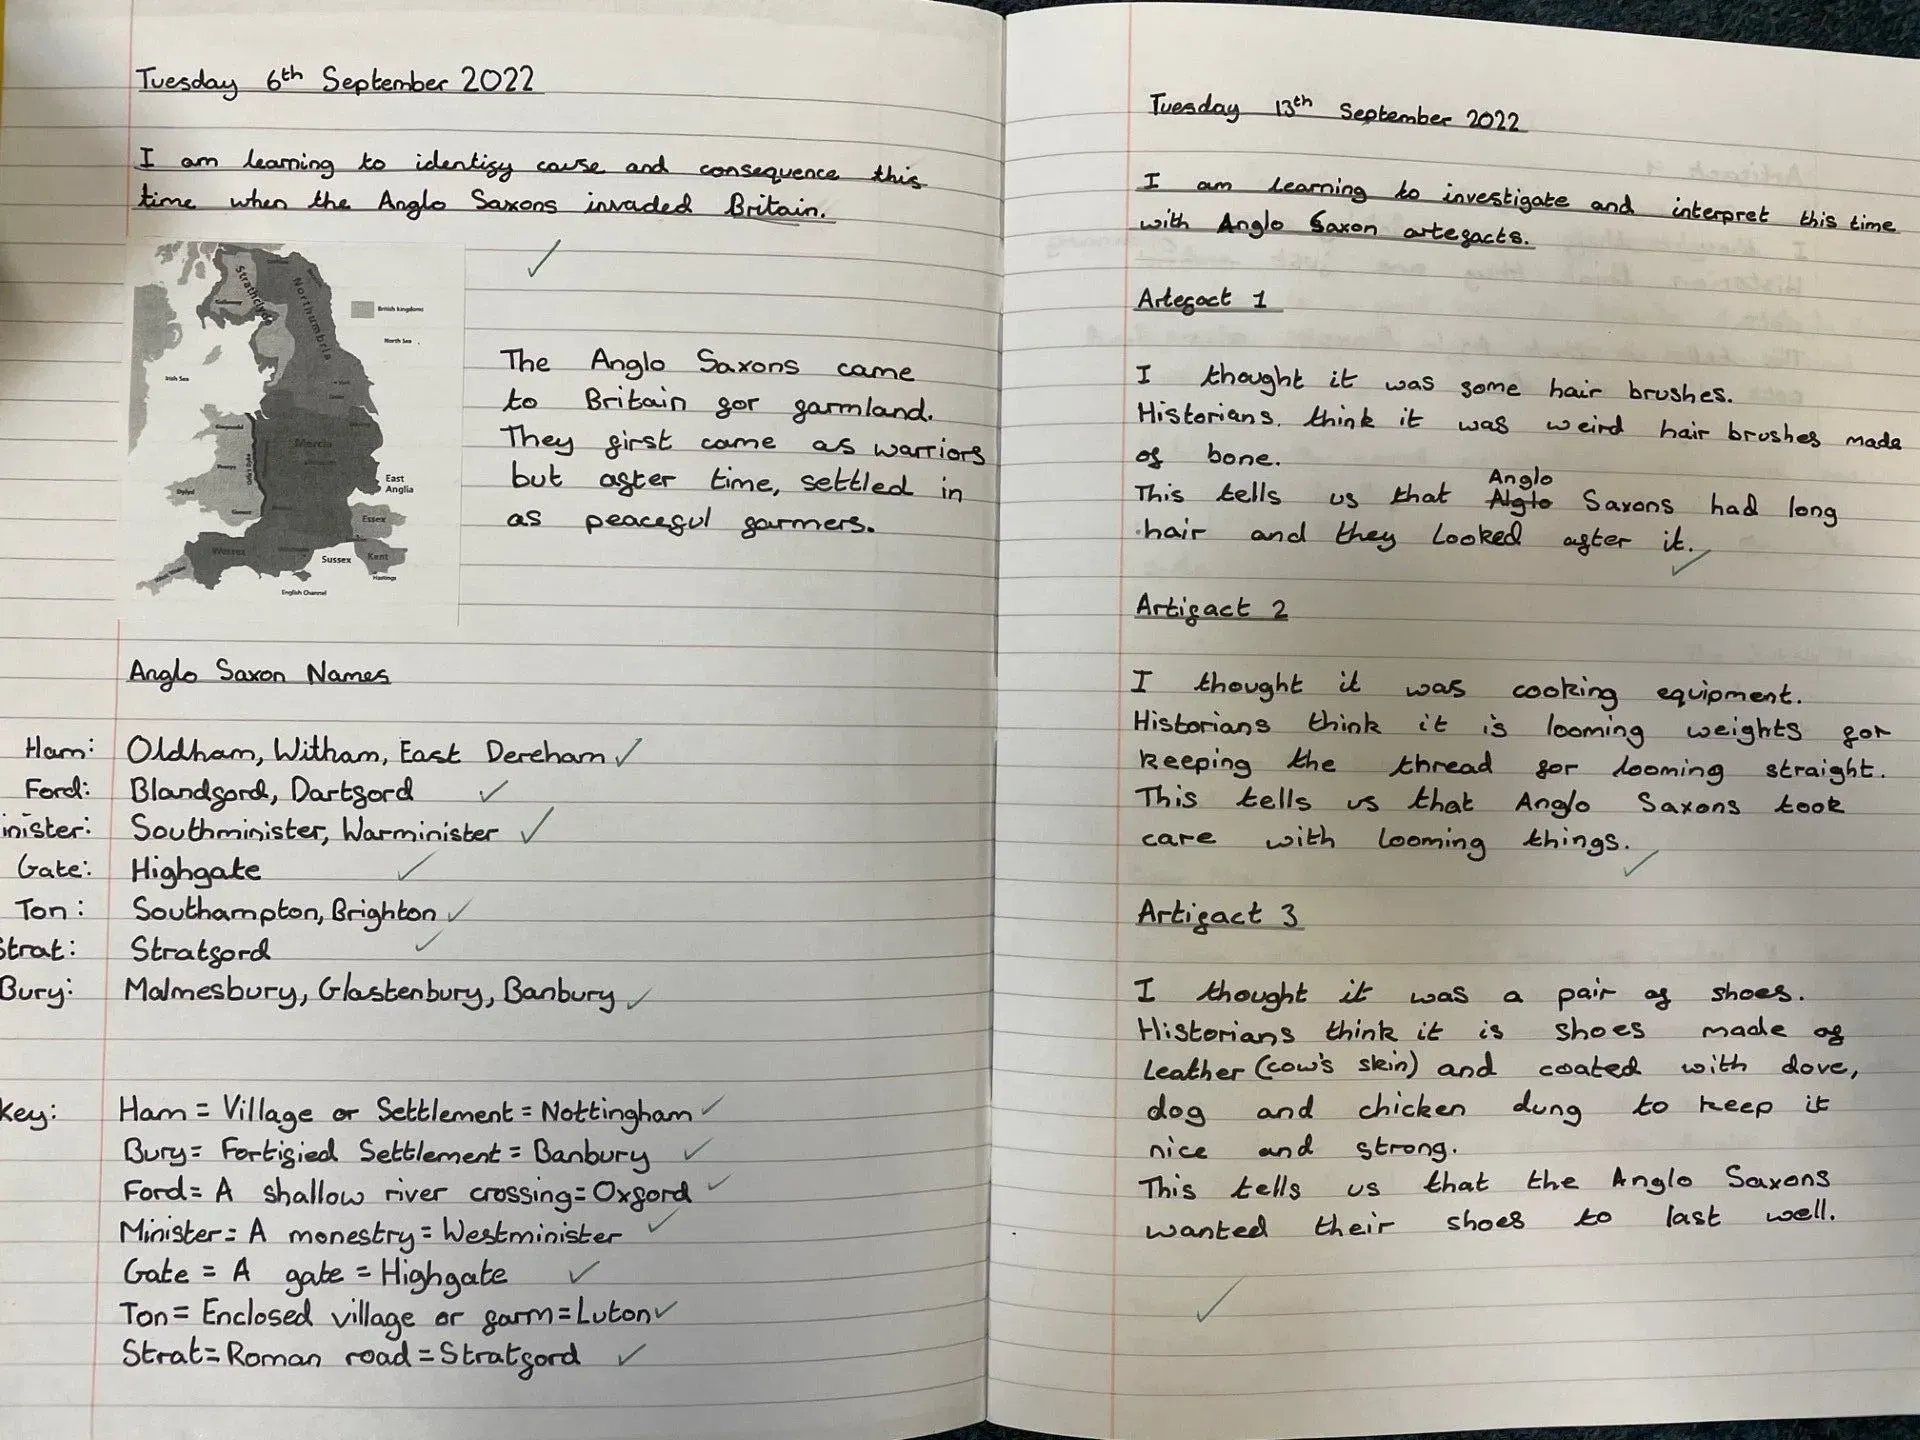 Tuesday 6th September 2022
I am learning to identify cause and consequence this
time when the Anglo Saxons invaded Britain.
Strathclyde
Northumbria
British kingdoms
North Sea
Irish Sea
Mercia
East
Anglia
Essex
Wessex
Sussex
Kent
Hastings
English Channel
The Anglo Saxons came
to Britain for farmland.
They first came as warriors
but after time, settled in
as peaceful farmers.
Anglo Saxon Names
Ham: Oldham, Witham, East Dereham
Ford: Blandford, Dartford
inister: Southminister, Warminister
Gate: Highgate
Ton: Southampton, Brighton
Strat: Stratford
Bury: Malmesbury, Glastenbury, Banbury
Key: Ham = Village or Settlement = Nottingham
Bury= Fortified Settlement = Banbury
Ford= A shallow river crossing= Oxford
Minister= A monestry = Westminister
Gate = A gate = Highgate
Ton= Enclosed village or farm=Luton
Strat= Roman road = Stratford
Tuesday 13th September 2022
I am learning to investigate and interpret this time
with Anglo Saxon artefacts.
Artefact 1
I thought it was some hair brushes.
Historians. think it was weird hair brushes made
of bone.
Anglo
This tells us that Alglo Saxons had long
hair and they looked after it.
Artifact 2
I thought it was cooking equipment.
Historians think it is looming weights for
keeping the thread for looming straight.
This tells us that Anglo Saxons took
care with looming things.
Artifact 3
I thought it was a pair of shoes.
Historians think it is shoes made of
leather (cow's skin) and coated with dove,
dog and chicken dung to keep it
nice and strong.
This tells us that the Anglo Saxons
wanted their shoes to last well.